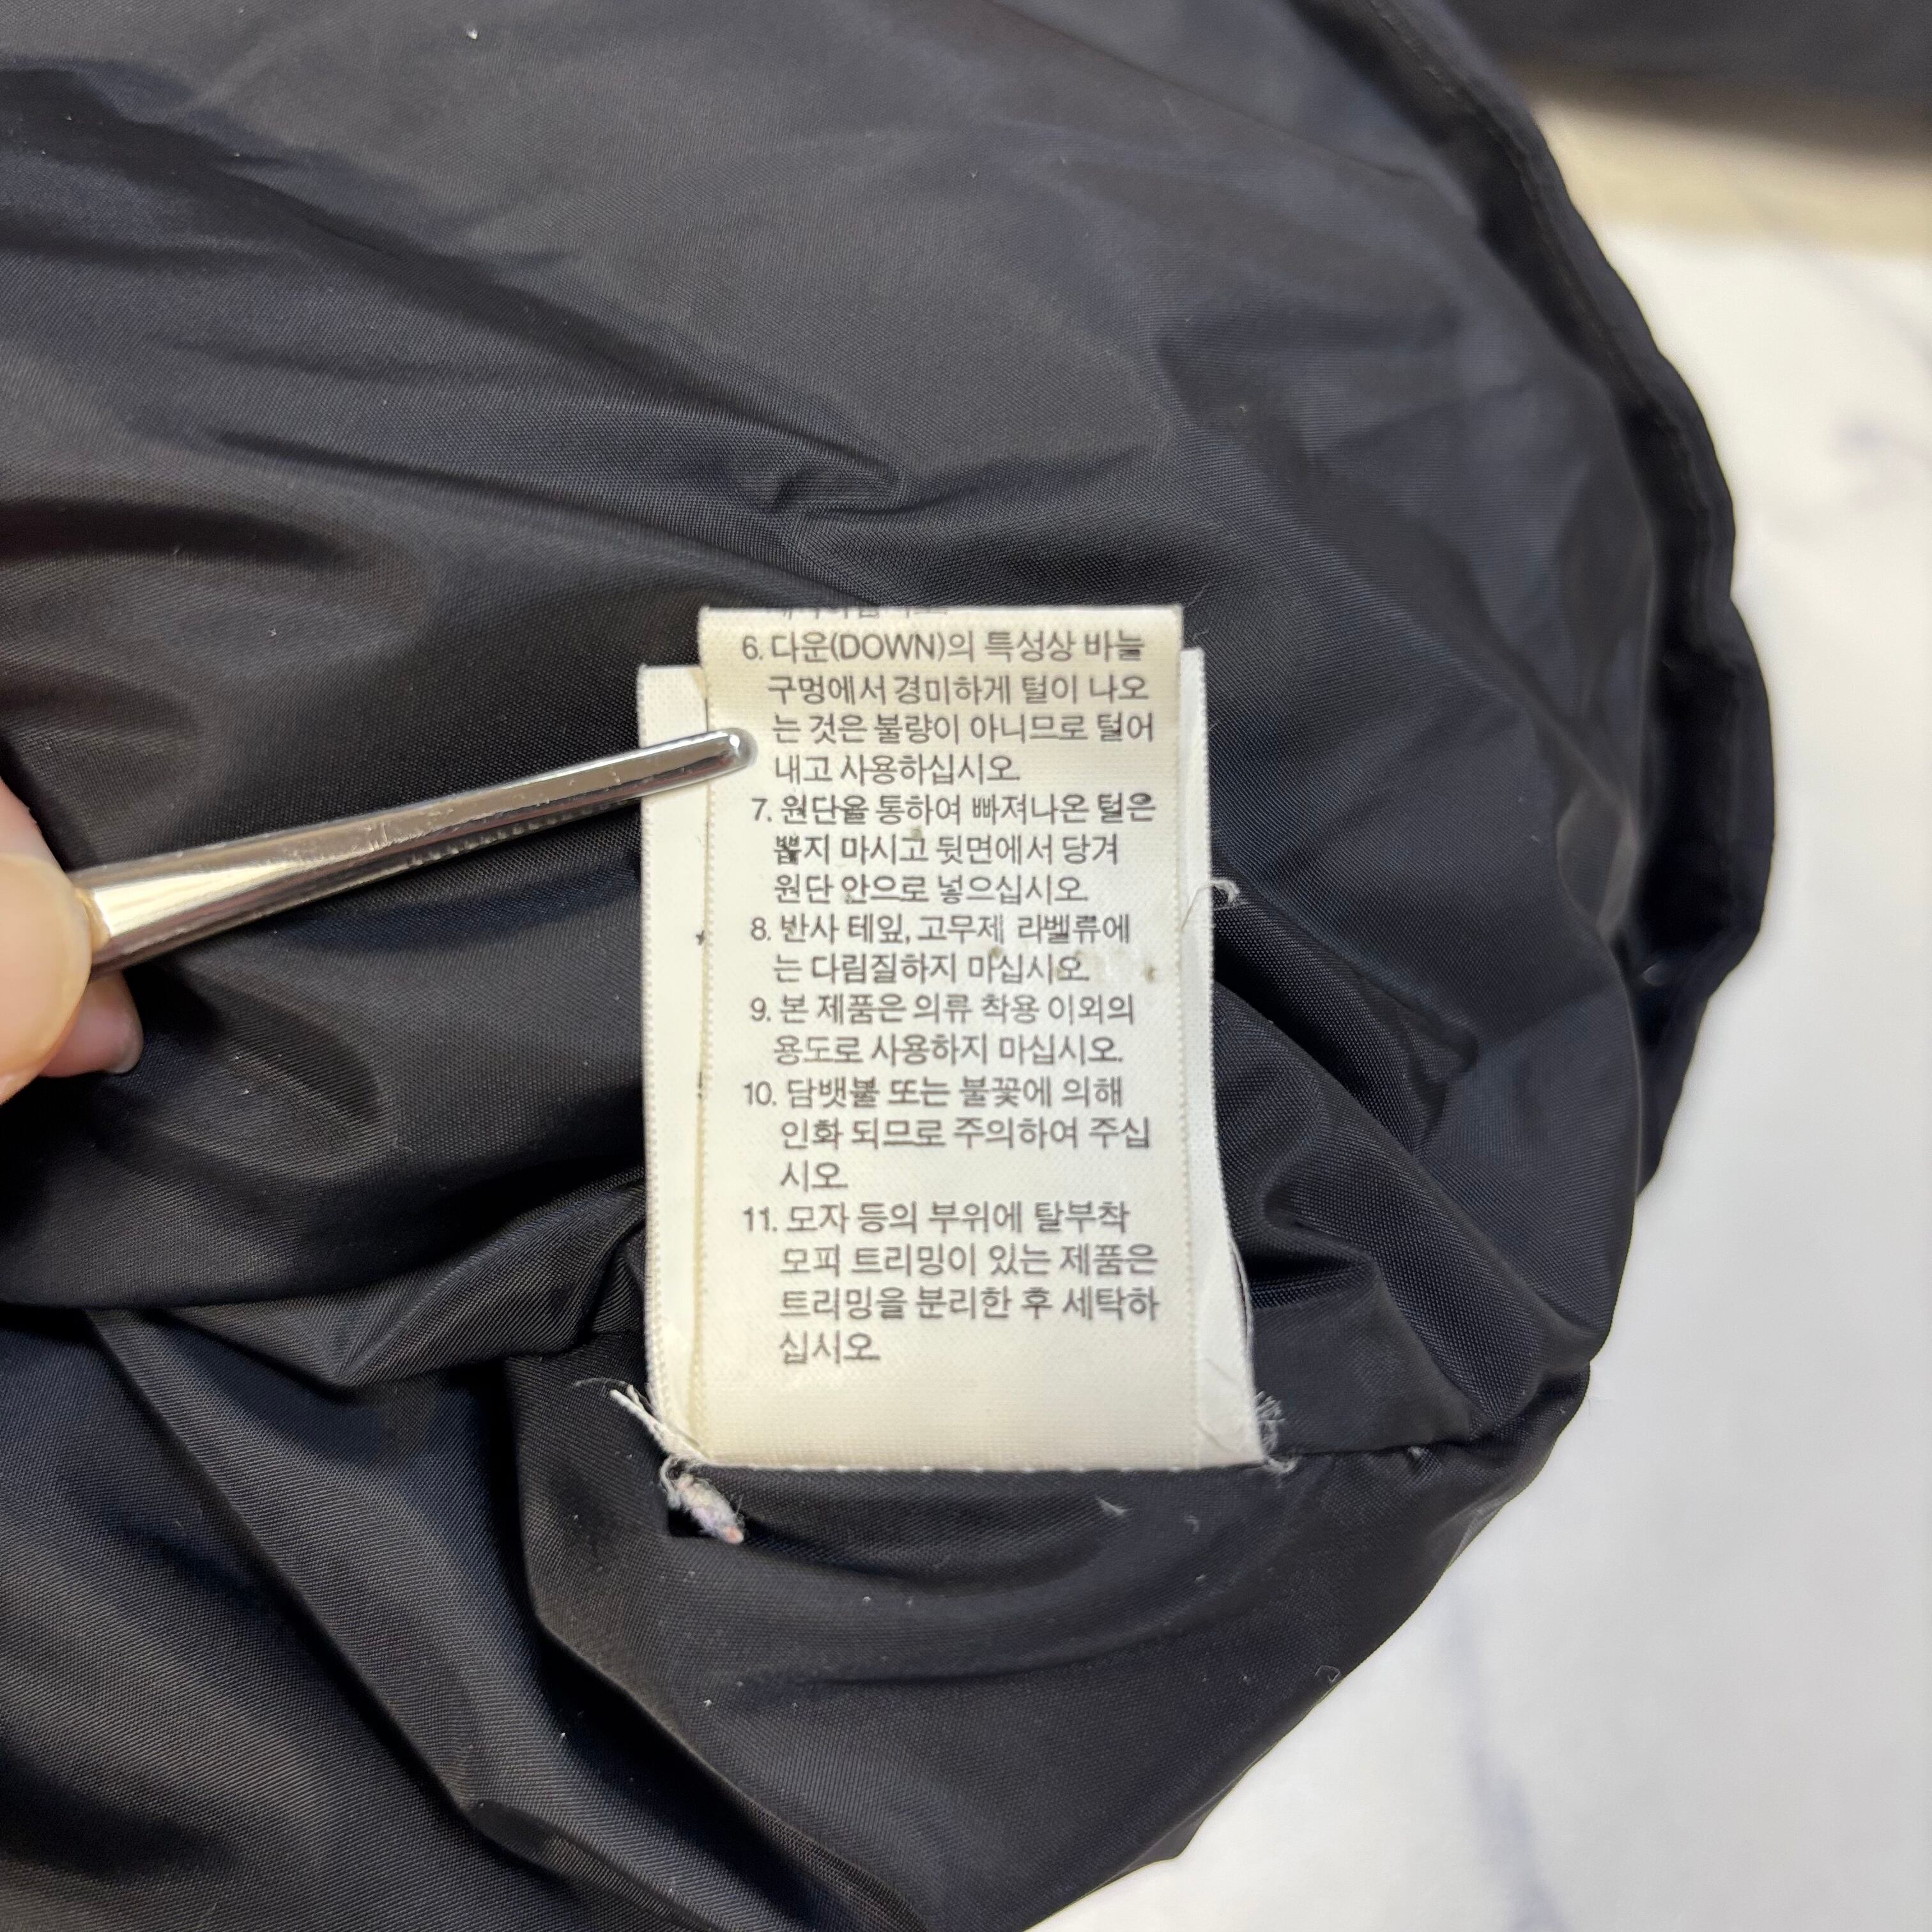 6. 다운(DOWN)의 특성상 바늘
구멍에서 경미하게 털이 나오
는 것은 불량이 아니므로 털어
내고 사용하십시오.
7. 원단을 통하여 빠져나온 털은
뽑지 마시고 뒷면에서 당겨
원단 안으로 넣으십시오.
8. 반사 테잎, 고무제 라벨류에
는 다림질하지 마십시오.
9. 본 제품은 의류 착용 이외의
용도로 사용하지 마십시오.
10. 담뱃불 또는 불꽃에 의해
인화 되므로 주의하여 주십
시오.
11. 모자 등의 부위에 탈부착
모피 트리밍이 있는 제품은
트리밍을 분리한 후 세탁하
십시오.